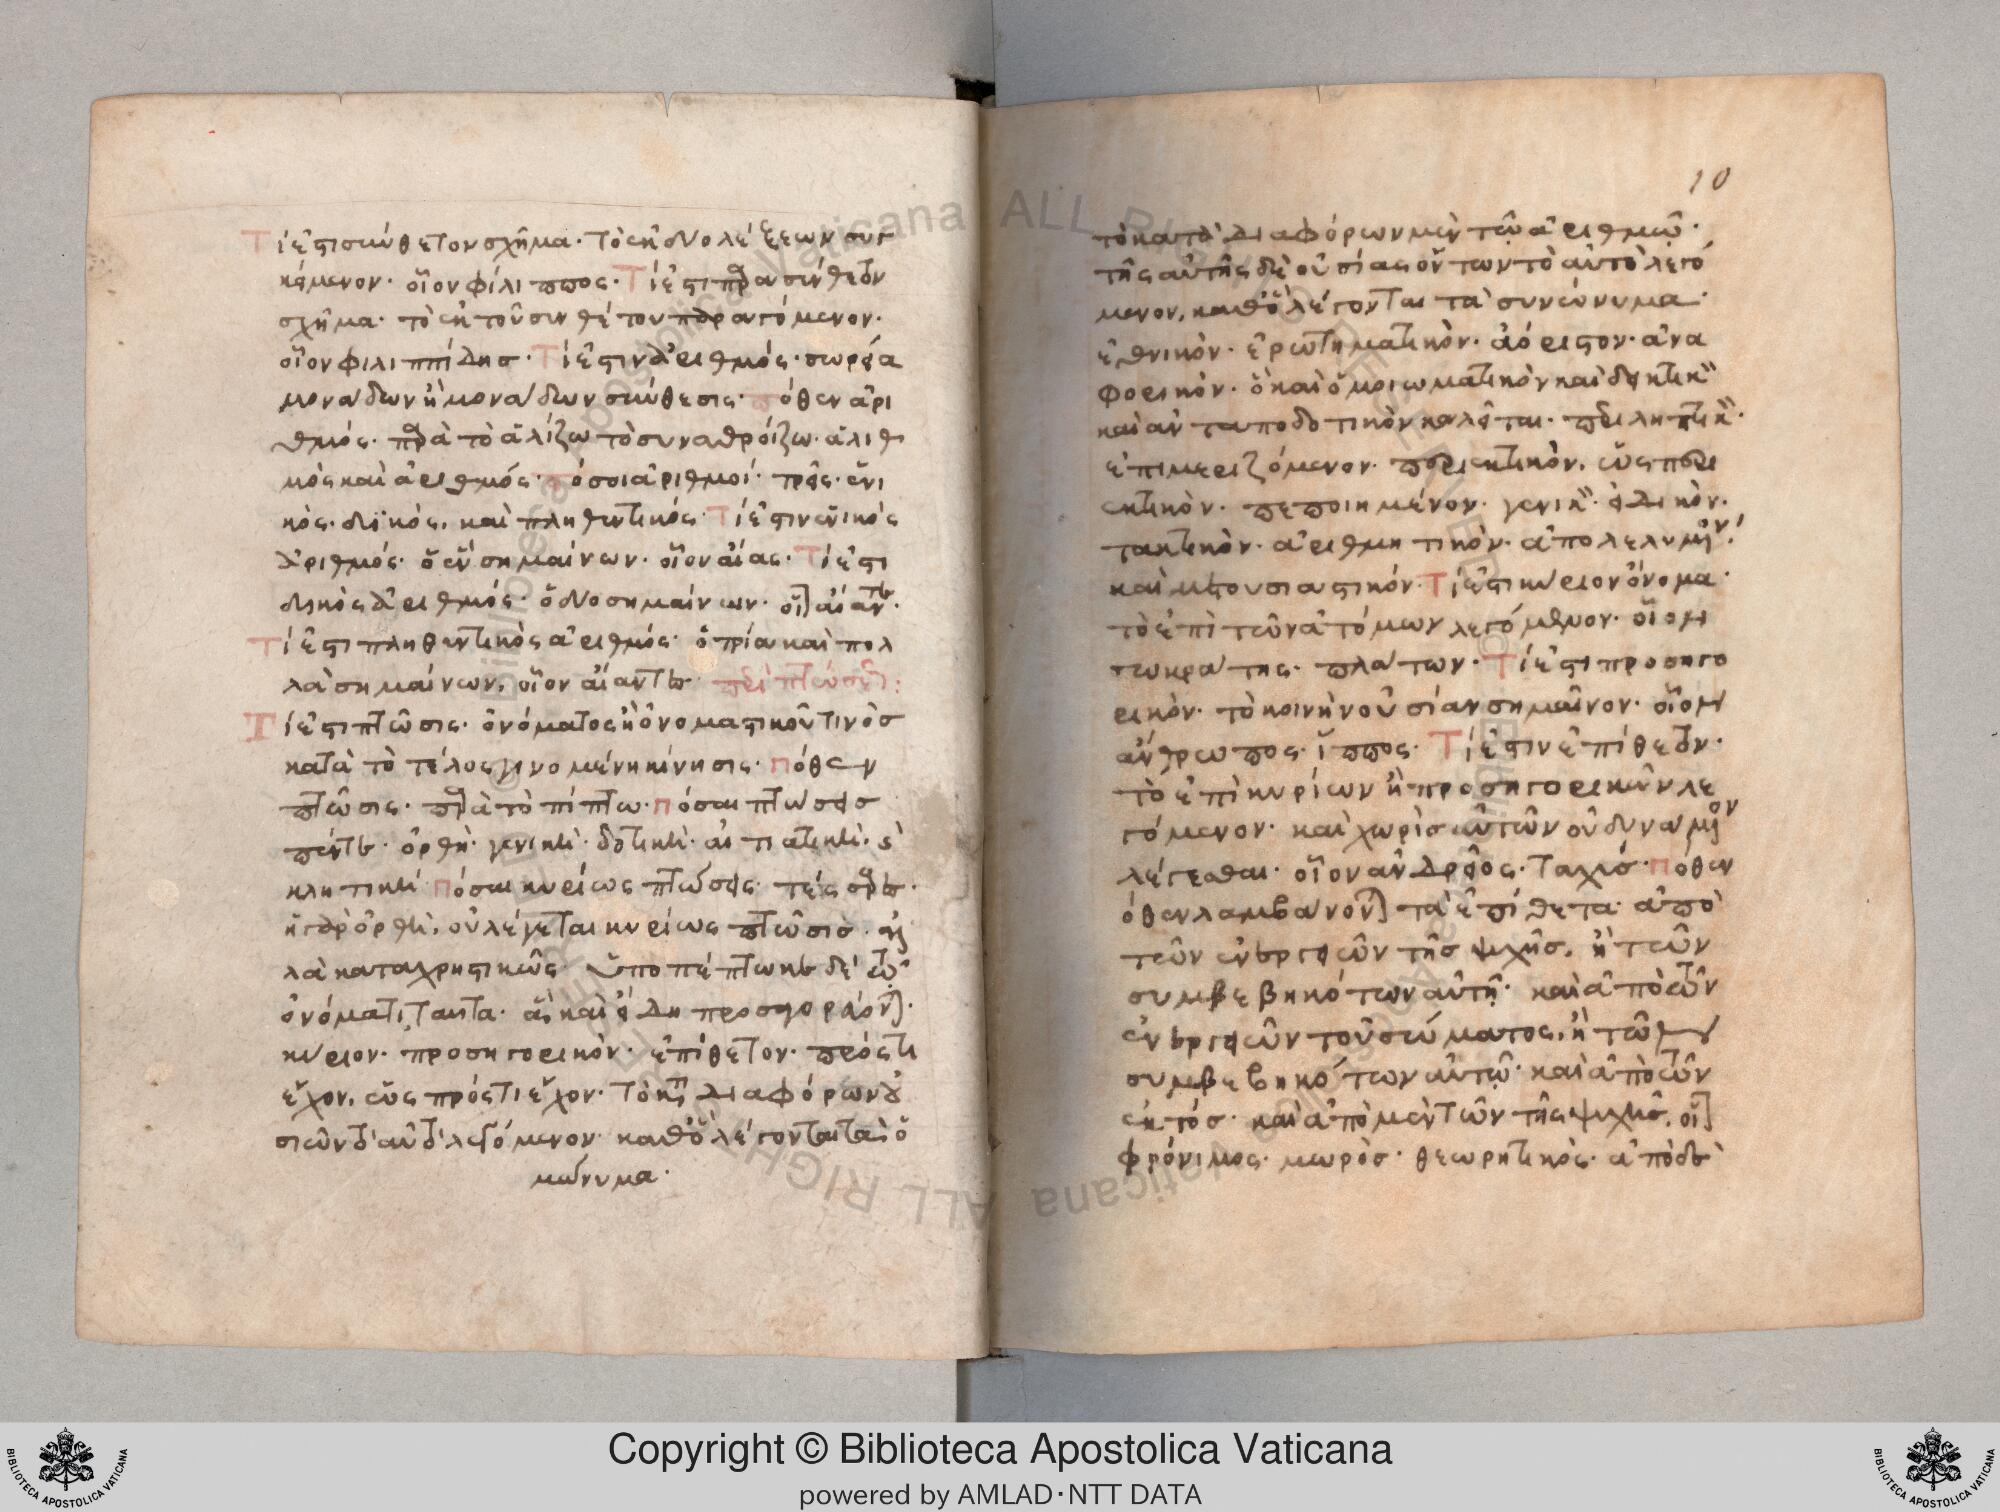 Τί ἐστι σύνθετον σχῆμα· τὸ ἐκ δύο λέξεων συγ
κείμενον· οἷον φίλιππος· Τί ἐστι παρασύνθετον
σχῆμα· τὸ ἐκ τοῦ συνθέτου παραγόμενον·
οἷον φιλιππίδης· Τί ἐστιν ἀριθμός· σωρεία
μονάδων ἢ μονάδων σύνθεσις· πόθεν ἀρι
θμός· παρὰ τὸ ἁλίζω τὸ συναθροίζω· ἁλιθ
μὸς καὶ ἀριθμός· πόσοι ἀριθμοί· τρεῖς· ἑνι
κὸς· δυϊκός, καὶ πληθυντικός· Τί ἐστιν ἑνικὸς
ἀριθμός· ὁ ἓν σημαίνων· οἷον αἴας· Τί ἐστι
δυικὸς ἀριθμός· ὁ δύο σημαίνων· οἷον αἴαντε·
Τί ἐστι πληθυντικὸς ἀριθμός· ὁ τρία καὶ πολ
λὰ σημαίνων, οἷον αἴαντες· περὶ πτώσεων:
Τί ἐστι πτῶσις· ὀνόματος ἢ ὀνοματικοῦ τινὸς
κατὰ τὸ τέλος γινομένη κίνησις· πόθεν
πτῶσις· παρὰ τὸ πίπτω· πόσαι πτώσεις
πέντε· ὀρθὴ· γενικὴ· δοτικὴ· αἰτιατικὴ· καὶ
κλητική· πόσαι κυρίως πτώσεις· τέσσαρες·
ἡ γὰρ ὀρθὴ, οὐ λέγεται κυρίως πτῶσις· ἀλ
λὰ καταχρηστικῶς· ὑποπέπτωκε δὲ τῷ
ὀνόματι ταῦτα· ἃ καὶ εἴδη προσαγορεύονται·
κύριον· προσηγορικὸν· ἐπίθετον· πρός τι
ἔχον, ὡς πρός τι ἔχον· τὸ κατὰ διαφόρων οὐ
σιῶν τὸ αὐτὸ λεγόμενον· καθὸ λέγονται τὰ ὁ
μώνυμα·
10
τὸ κατὰ διαφόρων μὲν τῷ ἀριθμῷ·
τῆς αὐτῆς δὲ οὐσίας ὄντων τὸ αὐτὸ λεγό
μενον, καθὸ λέγονται τὰ συνώνυμα·
ἐθνικὸν· ἐρωτηματικὸν· ἀόριστον· ἀνα
φορικὸν· ὃ καὶ ὁμοιωματικὸν καὶ δεικτικὸν
καὶ ἀνταποδοτικὸν καλεῖται· περιληπτικὸν·
ἐπιμεριζόμενον· περιεκτικὸν, ὡς περι
εκτικὸν· πεποιημένον· γενικὸν· εἰδικὸν·
τακτικὸν· ἀριθμητικὸν· ἀπολελυμένον·
καὶ μετουσιαστικόν· Τί ἐστι κύριον ὄνομα·
τὸ ἐπὶ τῶν ἀτόμων λεγόμενον· οἷον
σωκράτης· πλάτων· Τί ἐστι προσηγο
ρικὸν· τὸ κοινὴν οὐσίαν σημαῖνον· οἷον
ἄνθρωπος· ἵππος· Τί ἐστιν ἐπίθετον·
τὸ ἐπὶ κυρίων ἢ προσηγορικῶν λε
γόμενον· καὶ χωρὶς αὐτῶν οὐ δυνάμενον
λέγεσθαι· οἷον ἀνδρεῖος· ταχύς· πόθεν
ὅθεν λαμβάνονται τὰ ἐπίθετα· ἀπὸ
τῶν ἐνεργειῶν τῆς ψυχῆς, ἢ τῶν
συμβεβηκότων αὐτῇ· καὶ ἀπὸ τῶν
ἐνεργειῶν τοῦ σώματος, ἢ τῶν
συμβεβηκότων αὐτῷ· καὶ ἀπὸ τῶν
ἐκτός· καὶ ἀπὸ μὲν τῶν τῆς ψυχῆς, οἷον
φρόνιμος· μωρὸς· θεωρητικὸς· ἀπὸ δὲ
Copyright © Biblioteca Apostolica Vaticana
powered by AMLAD·NTT DATA
BIBLIOTECA APOSTOLICA VATICANA
BIBLIOTECA APOSTOLICA VATICANA